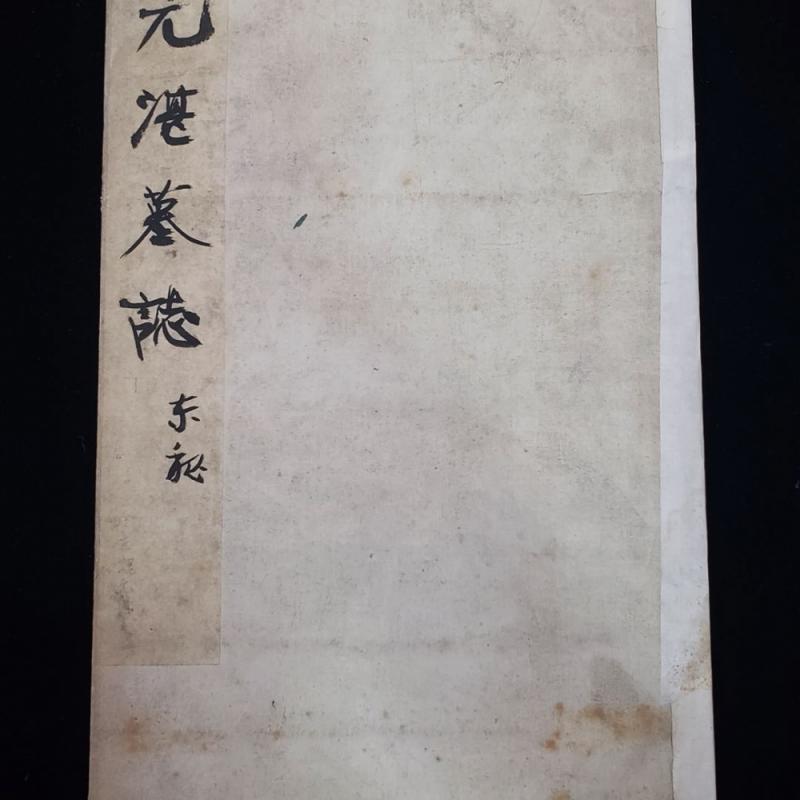 元湛墓誌
东秘